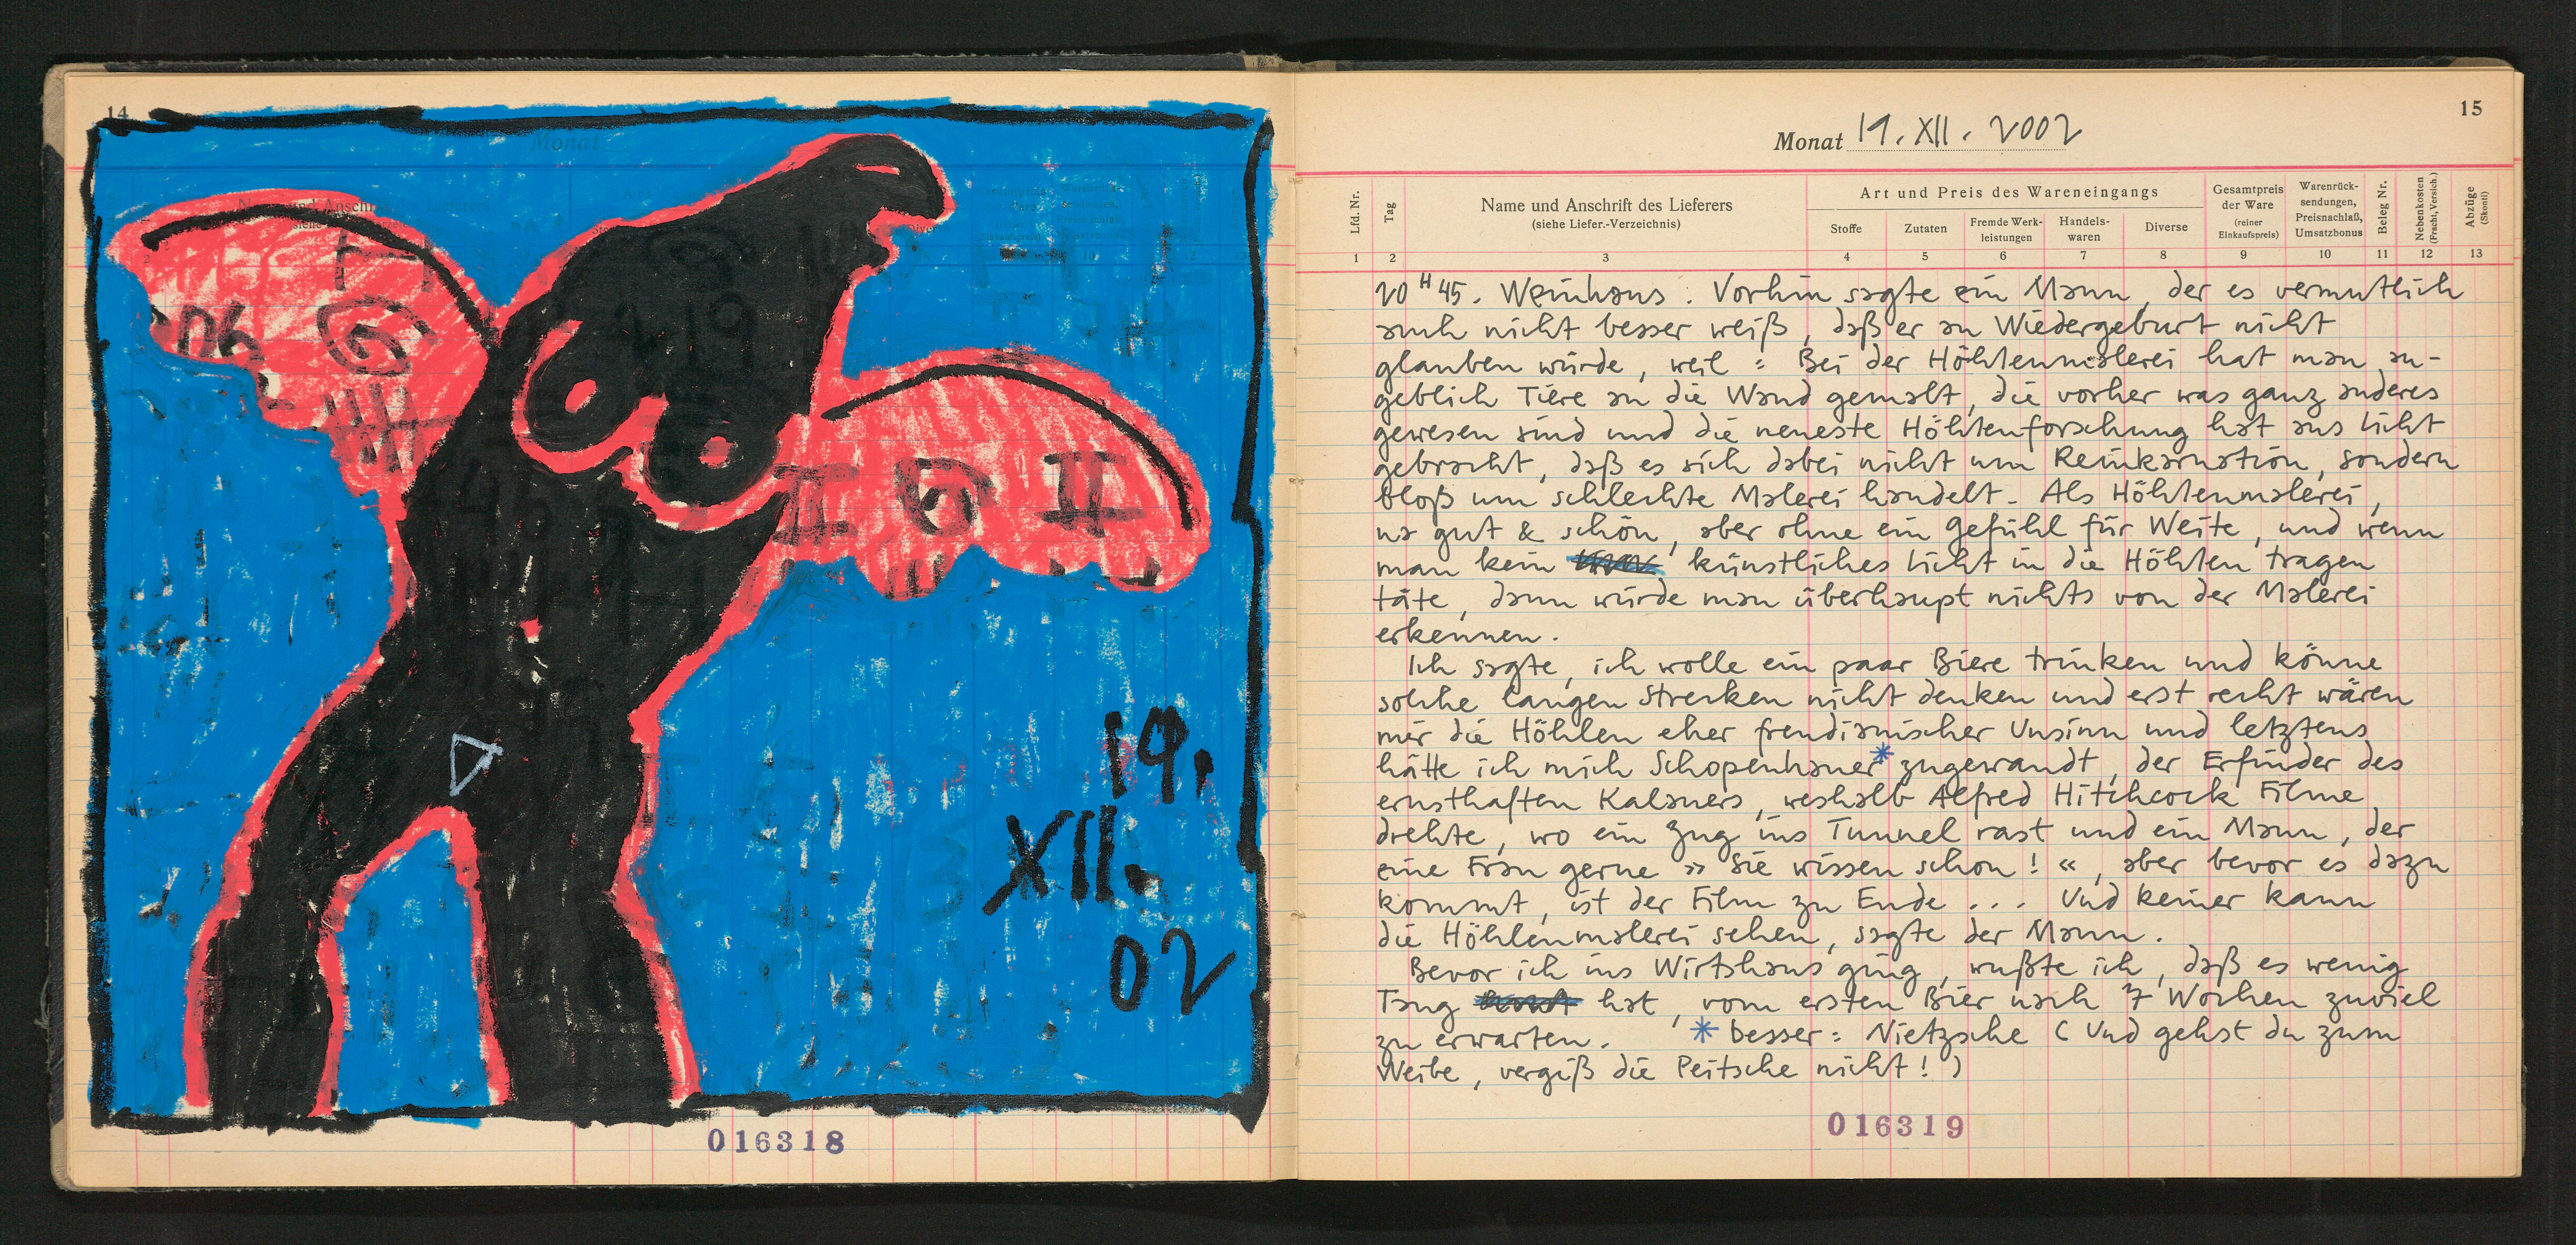 14
Monat
19.
XII.
02
016318
15
Monat 19. XII. 2002
Lfd. Nr.
Tag
Name und Anschrift des Lieferers
(siehe Liefer.-Verzeichnis)
Art und Preis des Wareneingangs
Stoffe
Zutaten
Fremde Werk-
leistungen
Handels-
waren
Diverse
Gesamtpreis
der Ware
(reiner
Einkaufspreis)
Warenrück-
sendungen,
Preisnachlaß,
Umsatzbonus
Beleg Nr.
Nebenkosten
(Fracht, Versich.)
Abzüge
(Skonti)
1 2 3 4 5 6 7 8 9 10 11 12 13
20 H 45. Weinhaus. Vorhin sagte ein Mann, der es vermutlich
auch nicht besser weiß, daß er an Wiedergeburt nicht
glauben würde, weil: Bei der Höhlenmalerei hat man an-
geblich Tiere an die Wand gemalt, die vorher was ganz anderes
gewesen sind und die neueste Höhlenforschung hat ans Licht
gebracht, daß es sich dabei nicht um Reinkarnation, sondern
bloß um schlechte Malerei handelt. Als Höhlenmalerei,
na gut & schön, aber ohne ein Gefühl für Weite, und wenn
man kein künstliches Licht in die Höhlen tragen
täte, dann würde man überhaupt nichts von der Malerei
erkennen.
Ich sagte, ich wolle ein paar Biere trinken und könne
solche langen Strecken nicht denken und erst recht wären
mir die Höhlen eher freudianischer Unsinn und letztens
hätte ich mich Schopenhauer* zugewandt, der Erfinder des
ernsthaften Kalauers, weshalb Alfred Hitchcock Filme
drehte, wo ein Zug ins Tunnel rast und ein Mann, der
eine Frau gerne »Sie wissen schon!«, aber bevor es dazu
kommt, ist der Film zu Ende ... Und keiner kann
die Höhlenmalerei sehen, sagte der Mann.
Bevor ich ins Wirtshaus ging, wußte ich, daß es wenig
Taug hat, vom ersten Bier nach 7 Wochen zuviel
zu erwarten. * besser: Nietzsche (Und gehst du zum
Weibe, vergiß die Peitsche nicht!)
016319